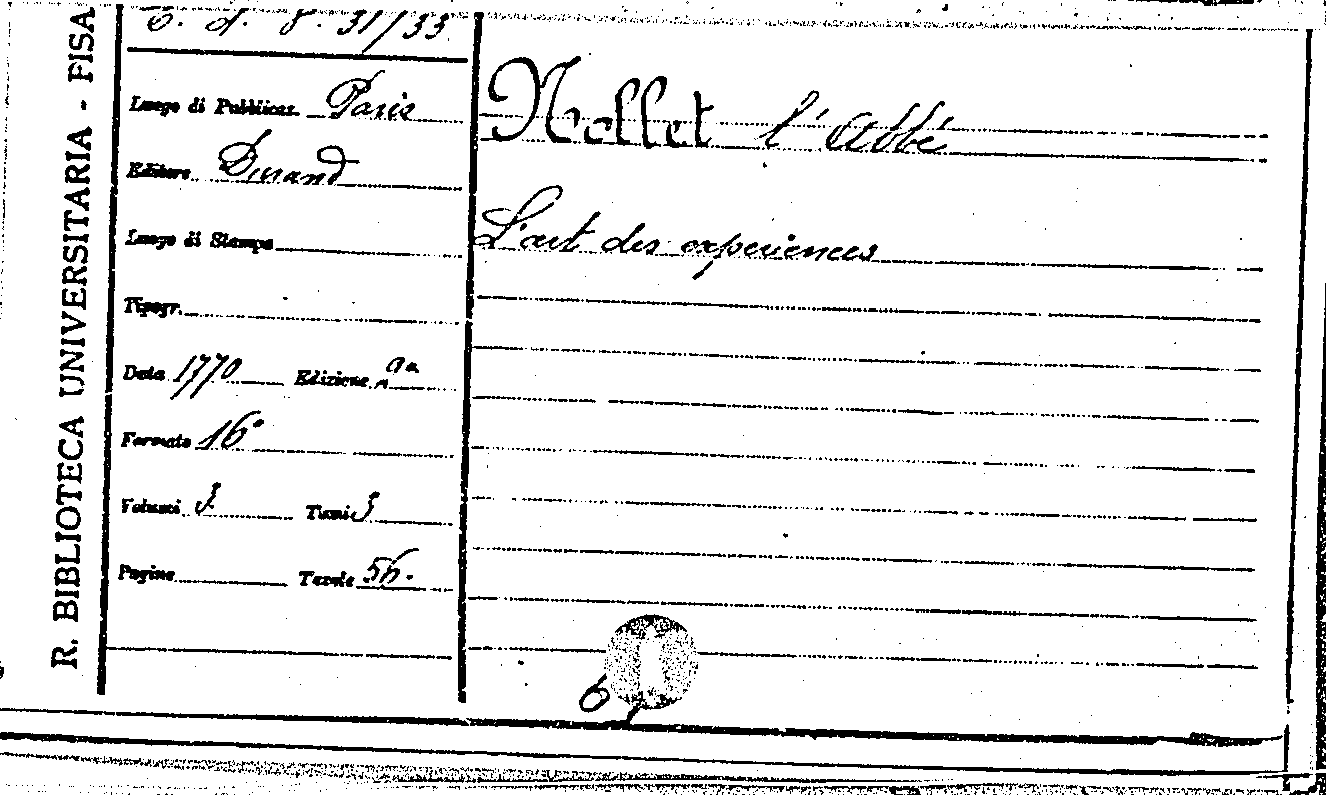 R. BIBLIOTECA UNIVERSITARIA - PISA
8. 31/33
Luogo di Pubblicaz. Paris
Editore Durand
Luogo di Stampa
Tipogr.
Data 1770 Edizione
Formato 16°
Volumi 3 Tomi 3
Pagine Tavole 56.
Nollet l'Abbé
L'art des experiences
6